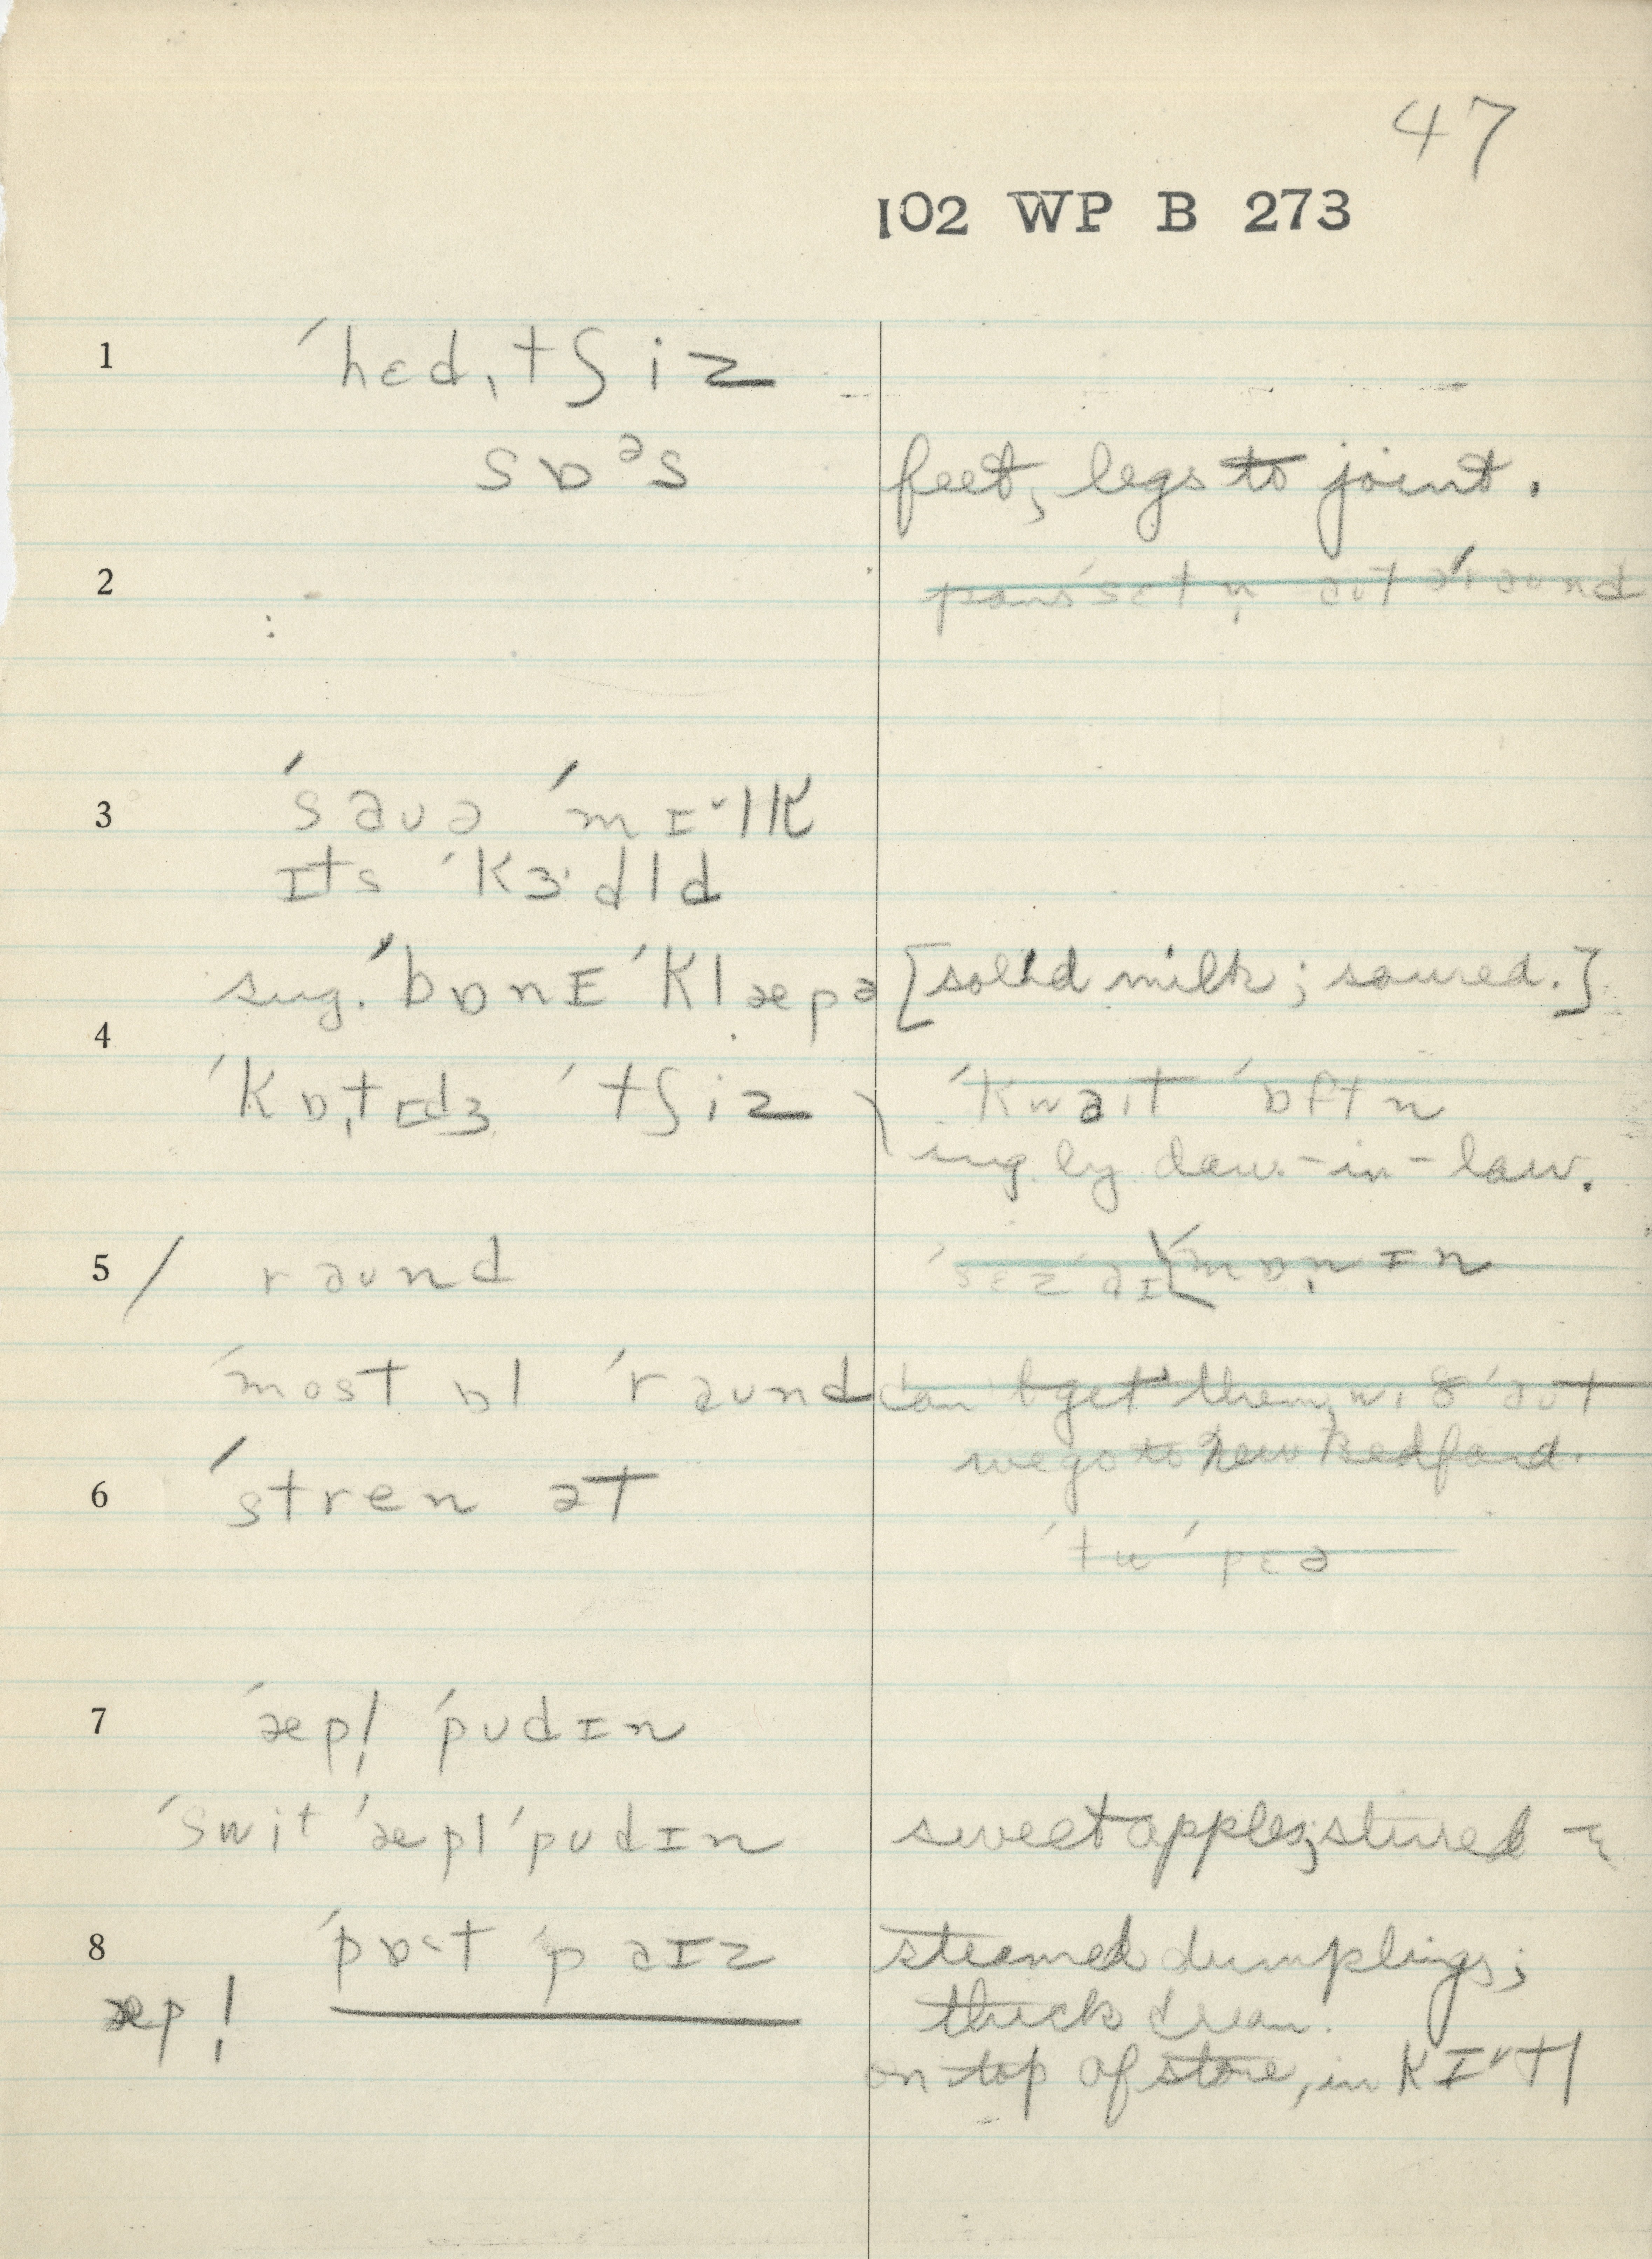 47
102 WP B 273
1 ˈhɛdˌtʃiz
sɒᵊs feet, legs to joint.
2
3 ˈsaʊə ˈmɪ˅lk
ɪts ˈkɜ·dld
sug. ˈbɒnɪ ˈklæpə [solid milk; soured.]
4
ˈkɒ̩tɪdʒ ˈtʃiz ˈkwaɪt ˈɒftn
sug by dau.-in-law.
5 / raʊnd ˈsɛz aɪ [ˈmɒ̩nɪn
ˈmost ɒl ˈraʊnd can't get them
we go to New Bedford.
6 ˈstren ət
ˈtu ˈpɛə
7 ˈæpl̩ ˈpʊdɪn
ˈswit ˈæpl ˈpʊdɪn sweet apples; stirred
8 ˈpɒ˂t ˈpaɪz steamed dumplings;
æpl̩ thick
on top of stove, in kɪ˅tl